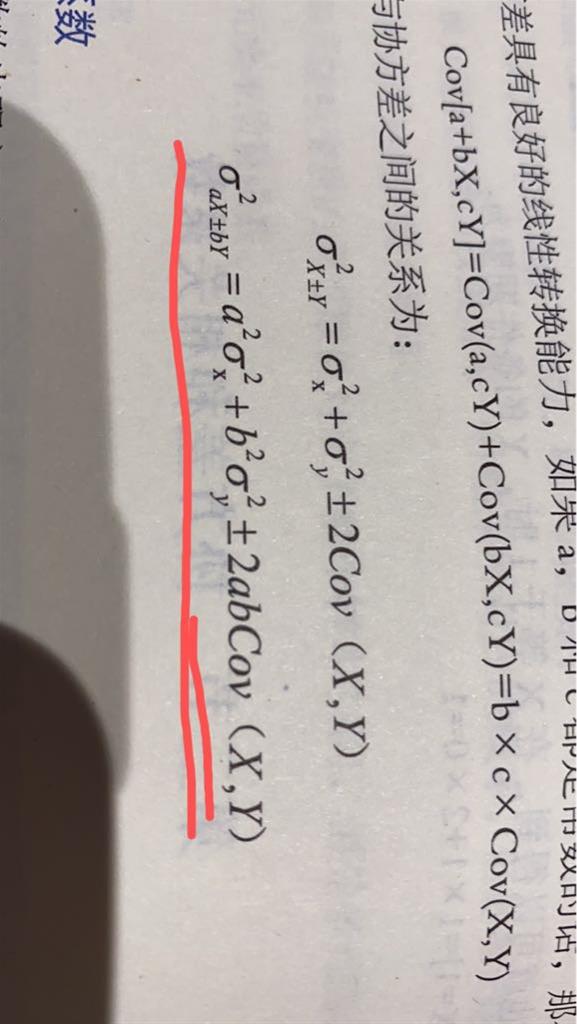 差具有良好的线性转换能力，如果 a，b 和 c 都是常数的话，那
Cov[a+bX,cY]=Cov(a,cY)+Cov(bX,cY)=b×c×Cov(X,Y)
与协方差之间的关系为：
σ²_{X±Y} = σ_x² + σ_y² ± 2Cov（X,Y）
σ²_{aX±bY} = a²σ_x² + b²σ_y² ± 2abCov（X,Y）
数